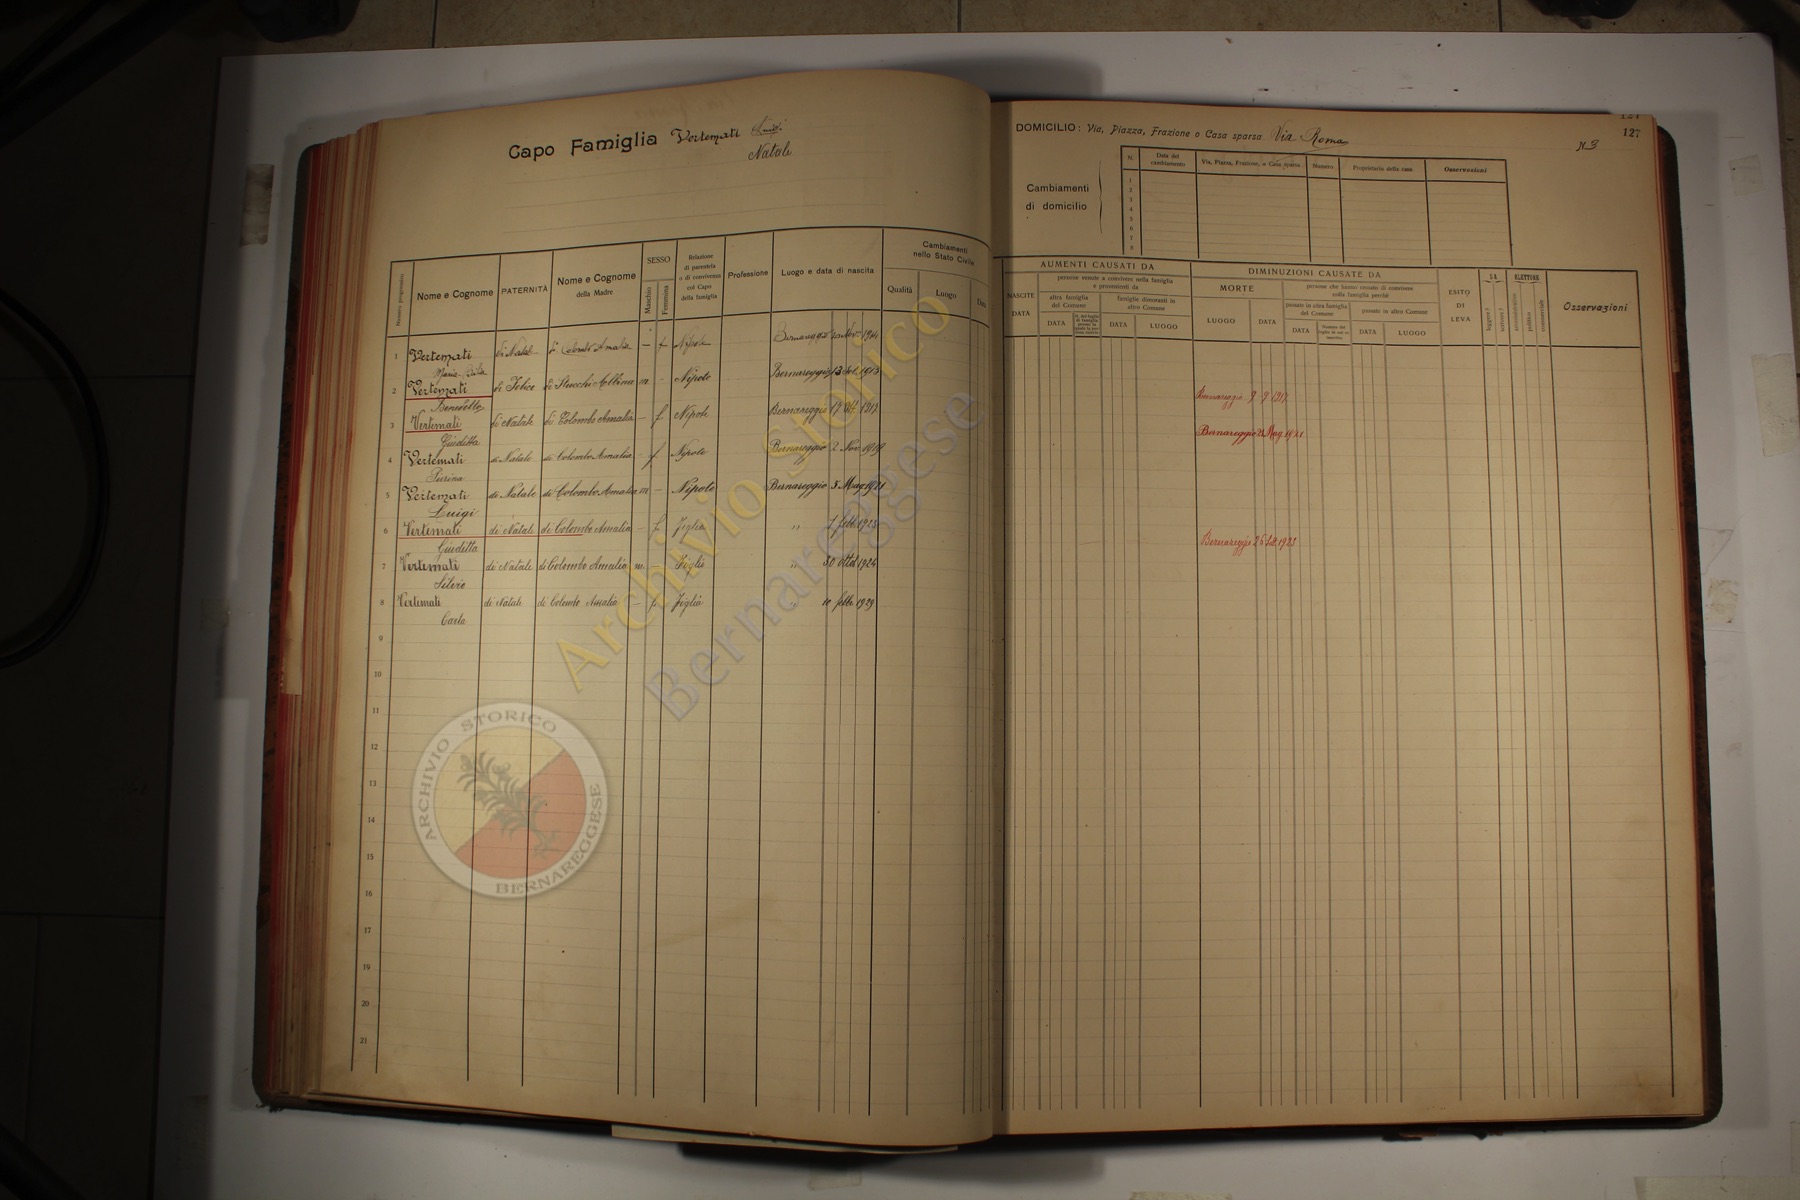 Capo Famiglia Vertemati Luigi
Natale
Numero progressivo
Nome e Cognome
PATERNITÀ
Nome e Cognome
della Madre
SESSO
Maschio
Femmina
Relazione
di parentela
o di convivenza
col Capo
della famiglia
Professione
Luogo e data di nascita
Cambiamenti
nello Stato Civile
Qualità
Luogo
Data
1 Vertemati di Natale di Colombo Amalia — f Nipote Bernareggio
Maria
2 Vertemati di Felice di Stucchi Albina m - Nipote Bernareggio 13 1913
Benedetto
3 Vertemati di Natale di Colombo Amalia - f Nipote Bernareggio 17 1917
Giuditta
4 Vertemati di Natale di Colombo Amalia - f Nipote Bernareggio 2 Nov. 1919
Pierina
5 Vertemati di Natale di Colombo Amalia m - Nipote Bernareggio 5 Mag 1921
Luigi
6 Vertemati di Natale di Colombo Amalia - f Figlia " 1 febb 1923
Giuditta
7 Vertemati di Natale di Colombo Amalia m - Figlio " 30 Ottob 1924
Silvio
8 Vertemati di Natale di Colombo Amalia - f Figlia " 10 febb 1929
Carla
9
10
11
12
13
14
15
16
17
19
20
21
127
DOMICILIO: Via, Piazza, Frazione o Casa sparsa Via Roma
N. 3
127
Cambiamenti
di domicilio
N.
Data del
cambiamento
Via, Piazza, Frazione, o Casa sparsa
Numero
Proprietario della casa
Osservazioni
1
2
3
4
5
6
7
8
AUMENTI CAUSATI DA
NASCITE
DATA
persone venute a convivere nella famiglia
e provenienti da
altra famiglia
del Comune
DATA
famiglie dimoranti in
altro Comune
DATA
LUOGO
DIMINUZIONI CAUSATE DA
MORTE
LUOGO
DATA
persone che hanno cessato di convivere
colla famiglia perchè
passate in altra famiglia
del Comune
DATA
passate in altro Comune
DATA
LUOGO
ESITO
DI
LEVA
SA
leggere?
scrivere?
ELETTORE
amministrativo
politico
commerciale
Osservazioni
Bernareggio 9 9 1917
Bernareggio Mag. 1921
Bernareggio 26 1923
Archivio Storico
Bernareggese
ARCHIVIO STORICO
BERNAREGGESE